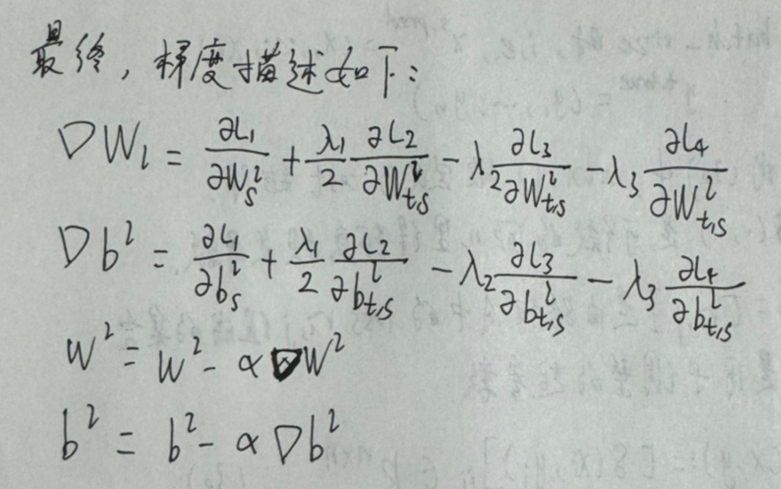 最终，梯度描述如下：
∇W_l = ∂L_1/∂W_s^l + λ_1/2 ∂L_2/∂W_{t,s}^l − λ_2 ∂L_3/∂W_{t,s}^l − λ_3 ∂L_4/∂W_{t,s}^l
∇b^l = ∂L_1/∂b_s^l + λ_1/2 ∂L_2/∂b_{t,s}^l − λ_2 ∂L_3/∂b_{t,s}^l − λ_3 ∂L_4/∂b_{t,s}^l
W^l = W^l − α∇W^l
b^l = b^l − α∇b^l